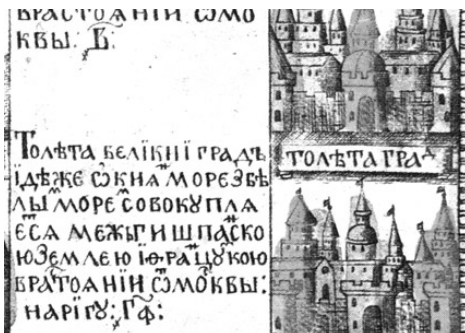 врастоѧнїи ѿмо
квы. в҃.
Толѣта велікиї градъ
їдѣже ѿкна морезбѣ
лы море совокꙋплѧ
еса межъгишпаско
юземлею їѳрацꙋкою
вратоѧнїи ѿмоквы:
нарігꙋ: гф:
толѣта град